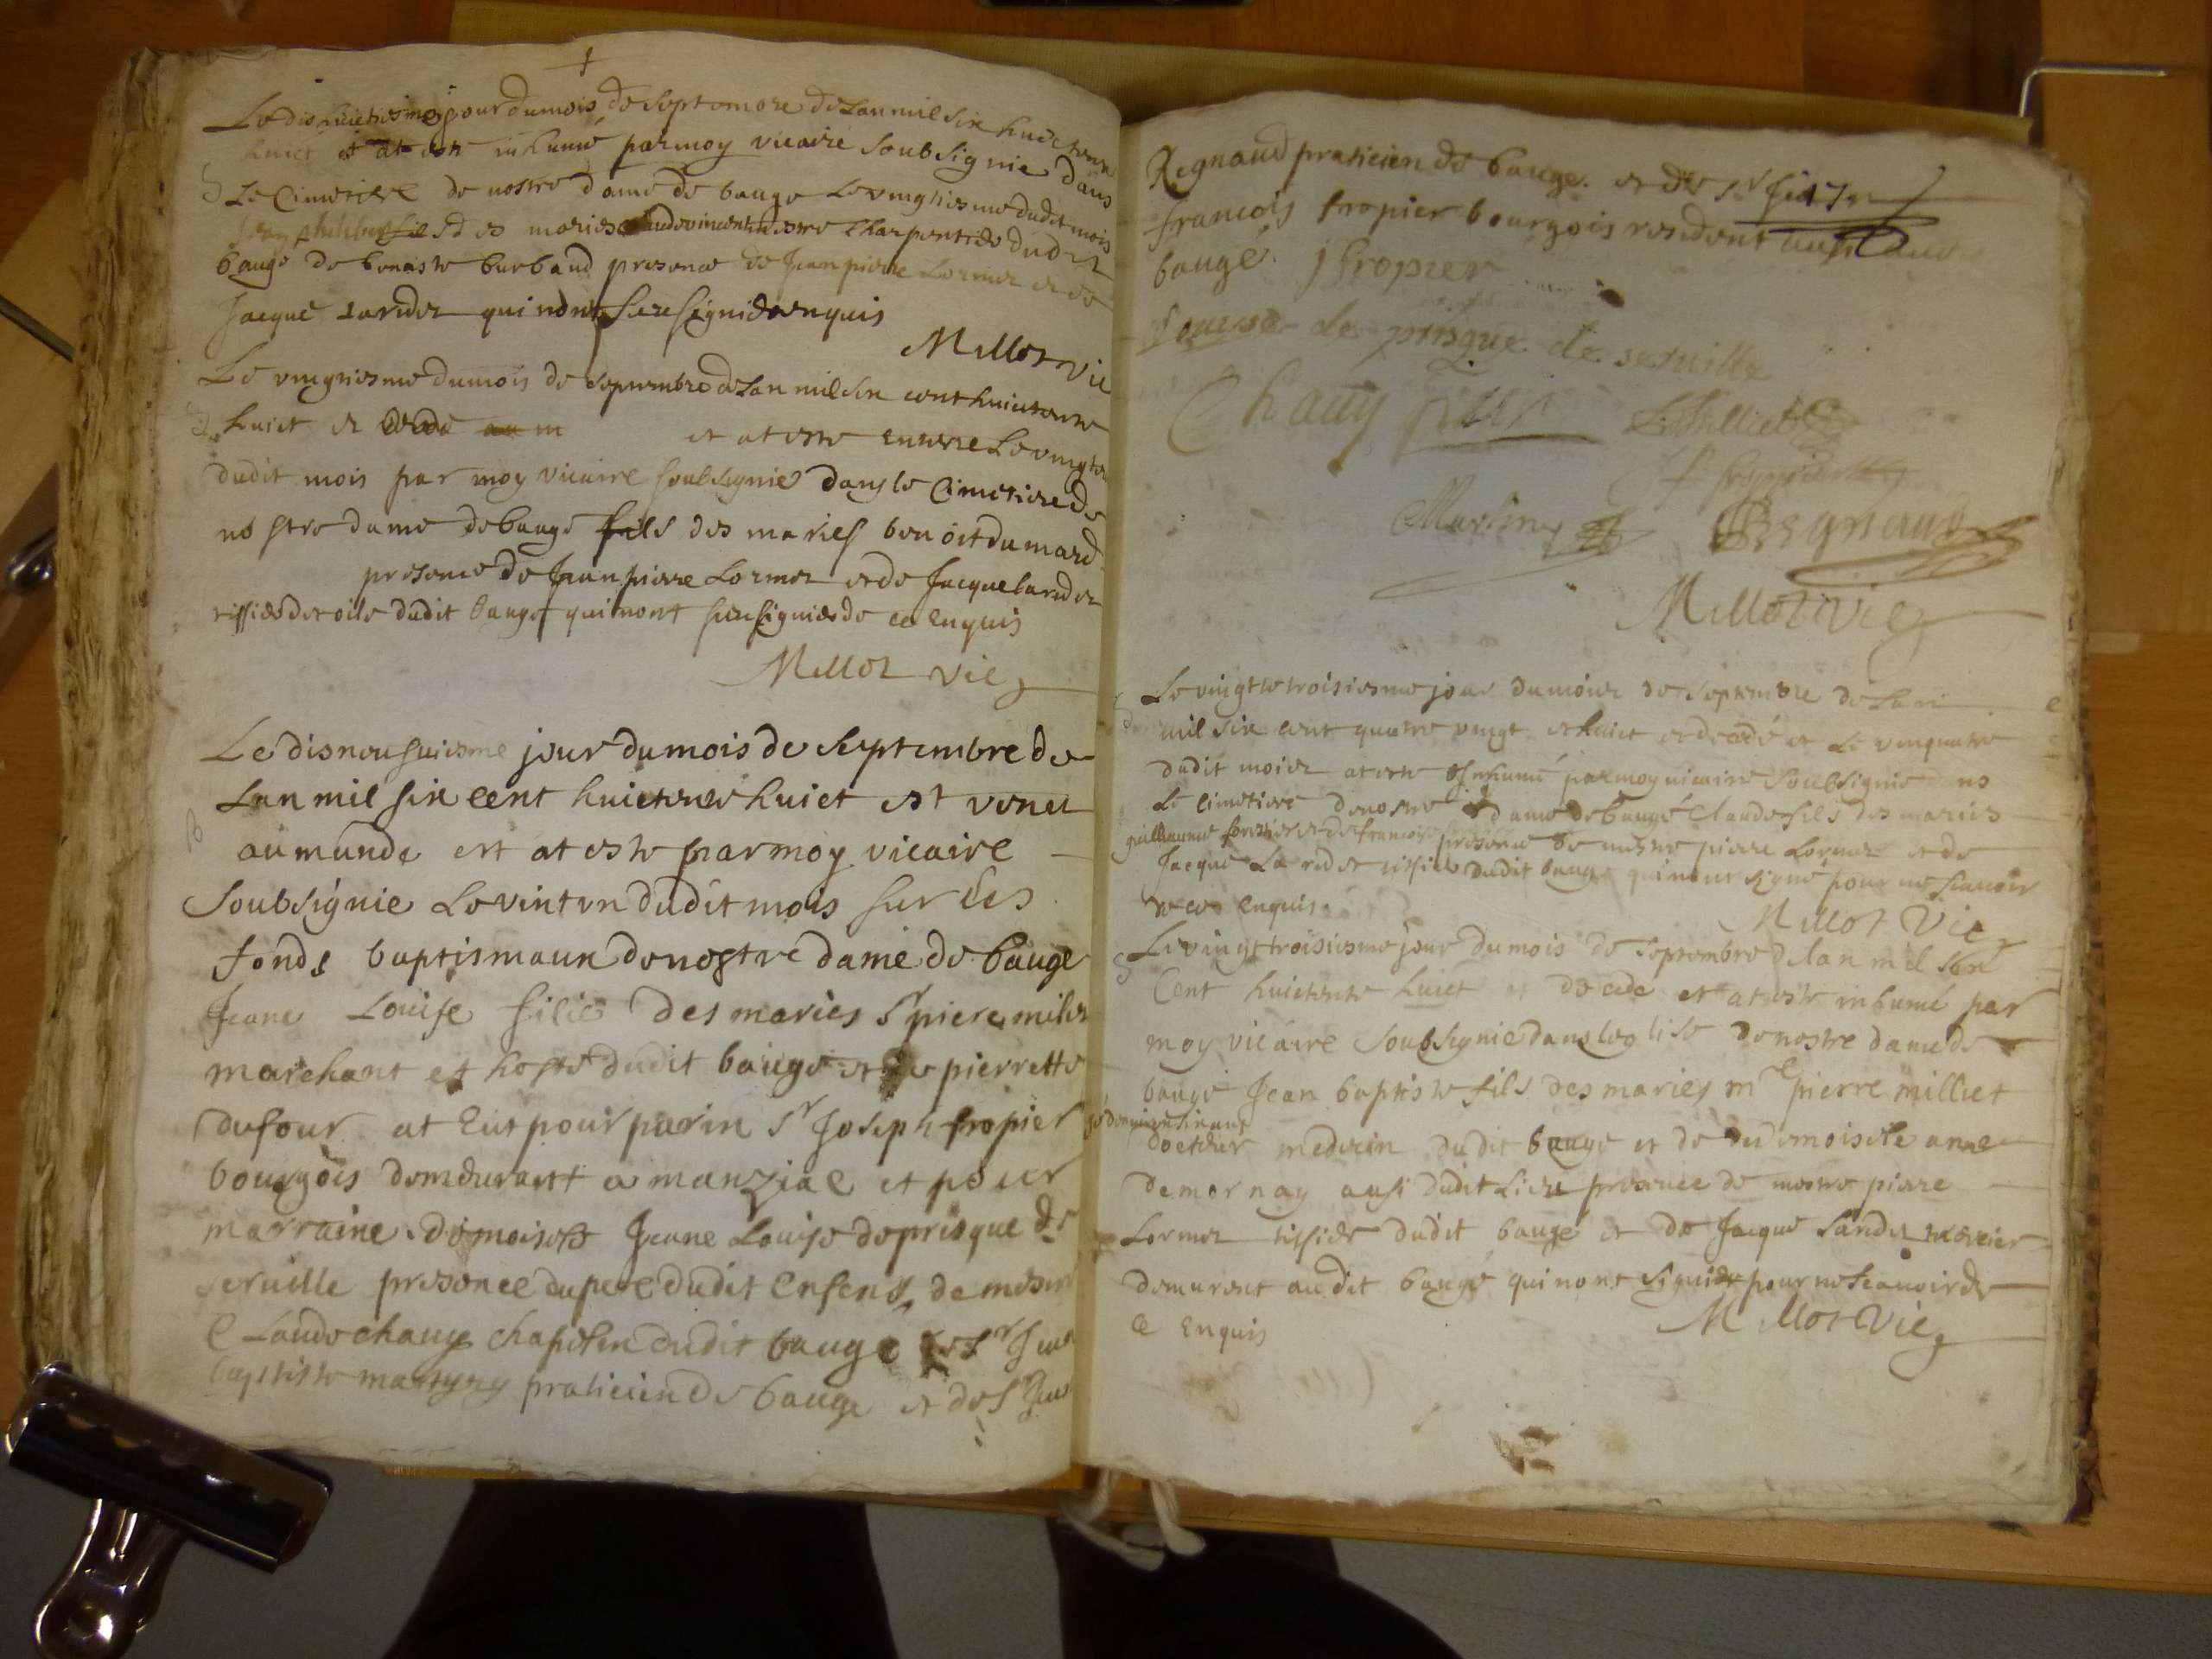 Le dishuictiesme jour du mois de septembre de Lan mil six huictente
huict et at este inhumé par moy vicaire soubsignie dans
Le Cimetiere de nostre dame de bauge Le vingtiesme dudit mois
Jean philibert fils des maries Claude vincent mestre Charpentier dudit
bauge de benoiste burband presence de Jean pierre Lormoz et de
Jacque Laridez qui nont sceu signié de enquis
Millot vic
Le vingtiesme du mois de septembre de Lan mil six cent huictente
huict et decede et at este enterre Le vingt
dudit mois par moy vicaire soubsignie dans le Cimetiere de
nostre dame de bauge fils des maries benoit dumard
presence de Jean pierre Lormoz et de Jacque laridez
tissier de toile dudit bauge qui nont sceu signié de ce enquis
Millot vic
Le disneufuiesme jour du mois de septembre de
Lan mil six cent huictente huict est venu
au munde ert at este par moy vicaire
soubsignie Le vint un dudit mois sur les
fonds baptismaux de nostre dame de bauge
Jeane Louise filie des maries Sr piere milet
marchant et hoste dudit bauge et de pierrette
dufour at eut pour parin Sr Joseph fropier
bourgois demeurant a manziae et pour
marraine demoiselle Jeane Louise de prisque de
seruille presence du pere dudit enfens, de messire
Claude chauy chapelin dudit bauge et Sr Jean
baptiste martyny praticien de bauge et de Sr Jean
Regnaud praticien de bauge. et de Sr
francois fropier bourgois resident aussi audit
baugé. J fropier
Louyse de prisque de seruille
Chauy
Milliet
f fropier
Martiny Regnaud
Millot vic
Le vingt et troisiesme jour du moiez de septembre de Lan
mil six cent quatre vingt et huict et decedé et Le vinquatre
dudit moiez at este Inhumé par moy vicaire soubsignie dans
Le cimetiere de nostre dame de baugé Claude fils des maries
guilliaume forestier et de francoise presence de mestre pierre Lormoz et de
Jacque Laridez tissier dudit bauge qui nont signé pour ne scauoir
de ce enquis
Millot Vic
Le vingt troisiesme jour du mois de septembre de lan mil six
Cent huictente huict et decede et at este inhumé par
moy vicaire soubsignie dans leglise de nostre dame de
bauge Jean baptiste fils des maries mre pierre milliet
docteur medecin dudit bauge et de dedemoiselle anne
demornay ausi dudit Lieu presence de mestre piere
Lormoz tissier dudit baugé et de Jacque Laridez
demurent audit baugé qui nont signié pour ne scauoir de
ce enquis
Millot Vic